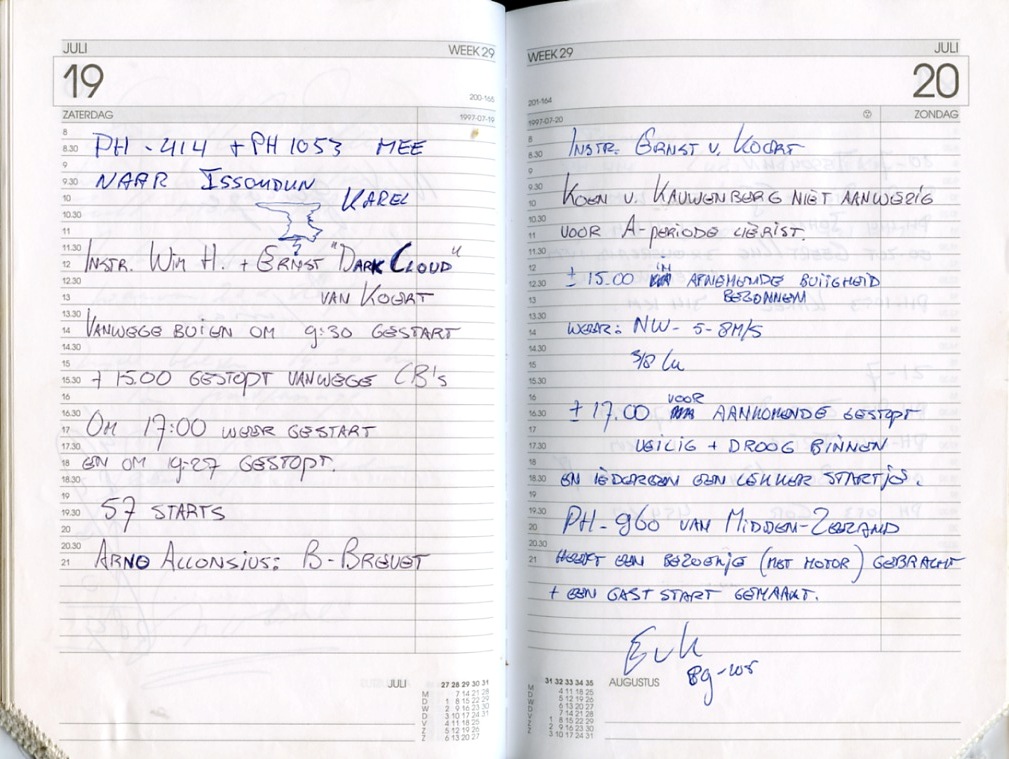 JULI WEEK 29
19
200-165
ZATERDAG 1997-07-19
PH-414 + PH1053 MEE
NAAR ISSOUDUN
KAREL
INSTR. WIM H. + ERNST "DARK CLOUD"
VAN KOERT
VANWEGE BUIEN OM 9:30 GESTART
± 15.00 GESTOPT VANWEGE CB's
OM 17:00 WEER GESTART
EN OM 19:27 GESTOPT.
57 STARTS
ARNO ALLONSIUS: B-BREVET
8
8.30
9
9.30
10
10.30
11
11.30
12
12.30
13
13.30
14
14.30
15
15.30
16
16.30
17
17.30
18
18.30
19
19.30
20
20.30
21
JULI
27 28 29 30 31
M 7 14 21 28
D 1 8 15 22 29
W 2 9 16 23 30
D 3 10 17 24 31
V 4 11 18 25
Z 5 12 19 26
Z 6 13 20 27
WEEK 29 JULI
20
201-164
1997-07-20 ZONDAG
INSTR. ERNST V. KOERT
KOEN V. KAUWENBERG NIET AANWEZIG
VOOR A-PERIODE LIERIST.
± 15.00 IN AFNEMENDE BUIIGHEID
BEGONNEN
WEER: NW - 5-8M/S
3/8 Cu
± 17.00 VOOR AANKOMENDE GESTOPT
VEILIG + DROOG BINNEN
EN IEDEREEN EEN LEKKER STARTJE.
PH-960 VAN MIDDEN-ZEELAND
HEEFT EEN BEZOEKJE (MET MOTOR) GEBRACHT
+ EEN GAST START GEMAAKT.
EvK
8
8.30
9
9.30
10
10.30
11
11.30
12
12.30
13
13.30
14
14.30
15
15.30
16
16.30
17
17.30
18
18.30
19
19.30
20
20.30
21
31 32 33 34 35 AUGUSTUS
M 4 11 18 25
D 5 12 19 26
W 6 13 20 27
D 7 14 21 28
V 1 8 15 22 29
Z 2 9 16 23 30
Z 3 10 17 24 31